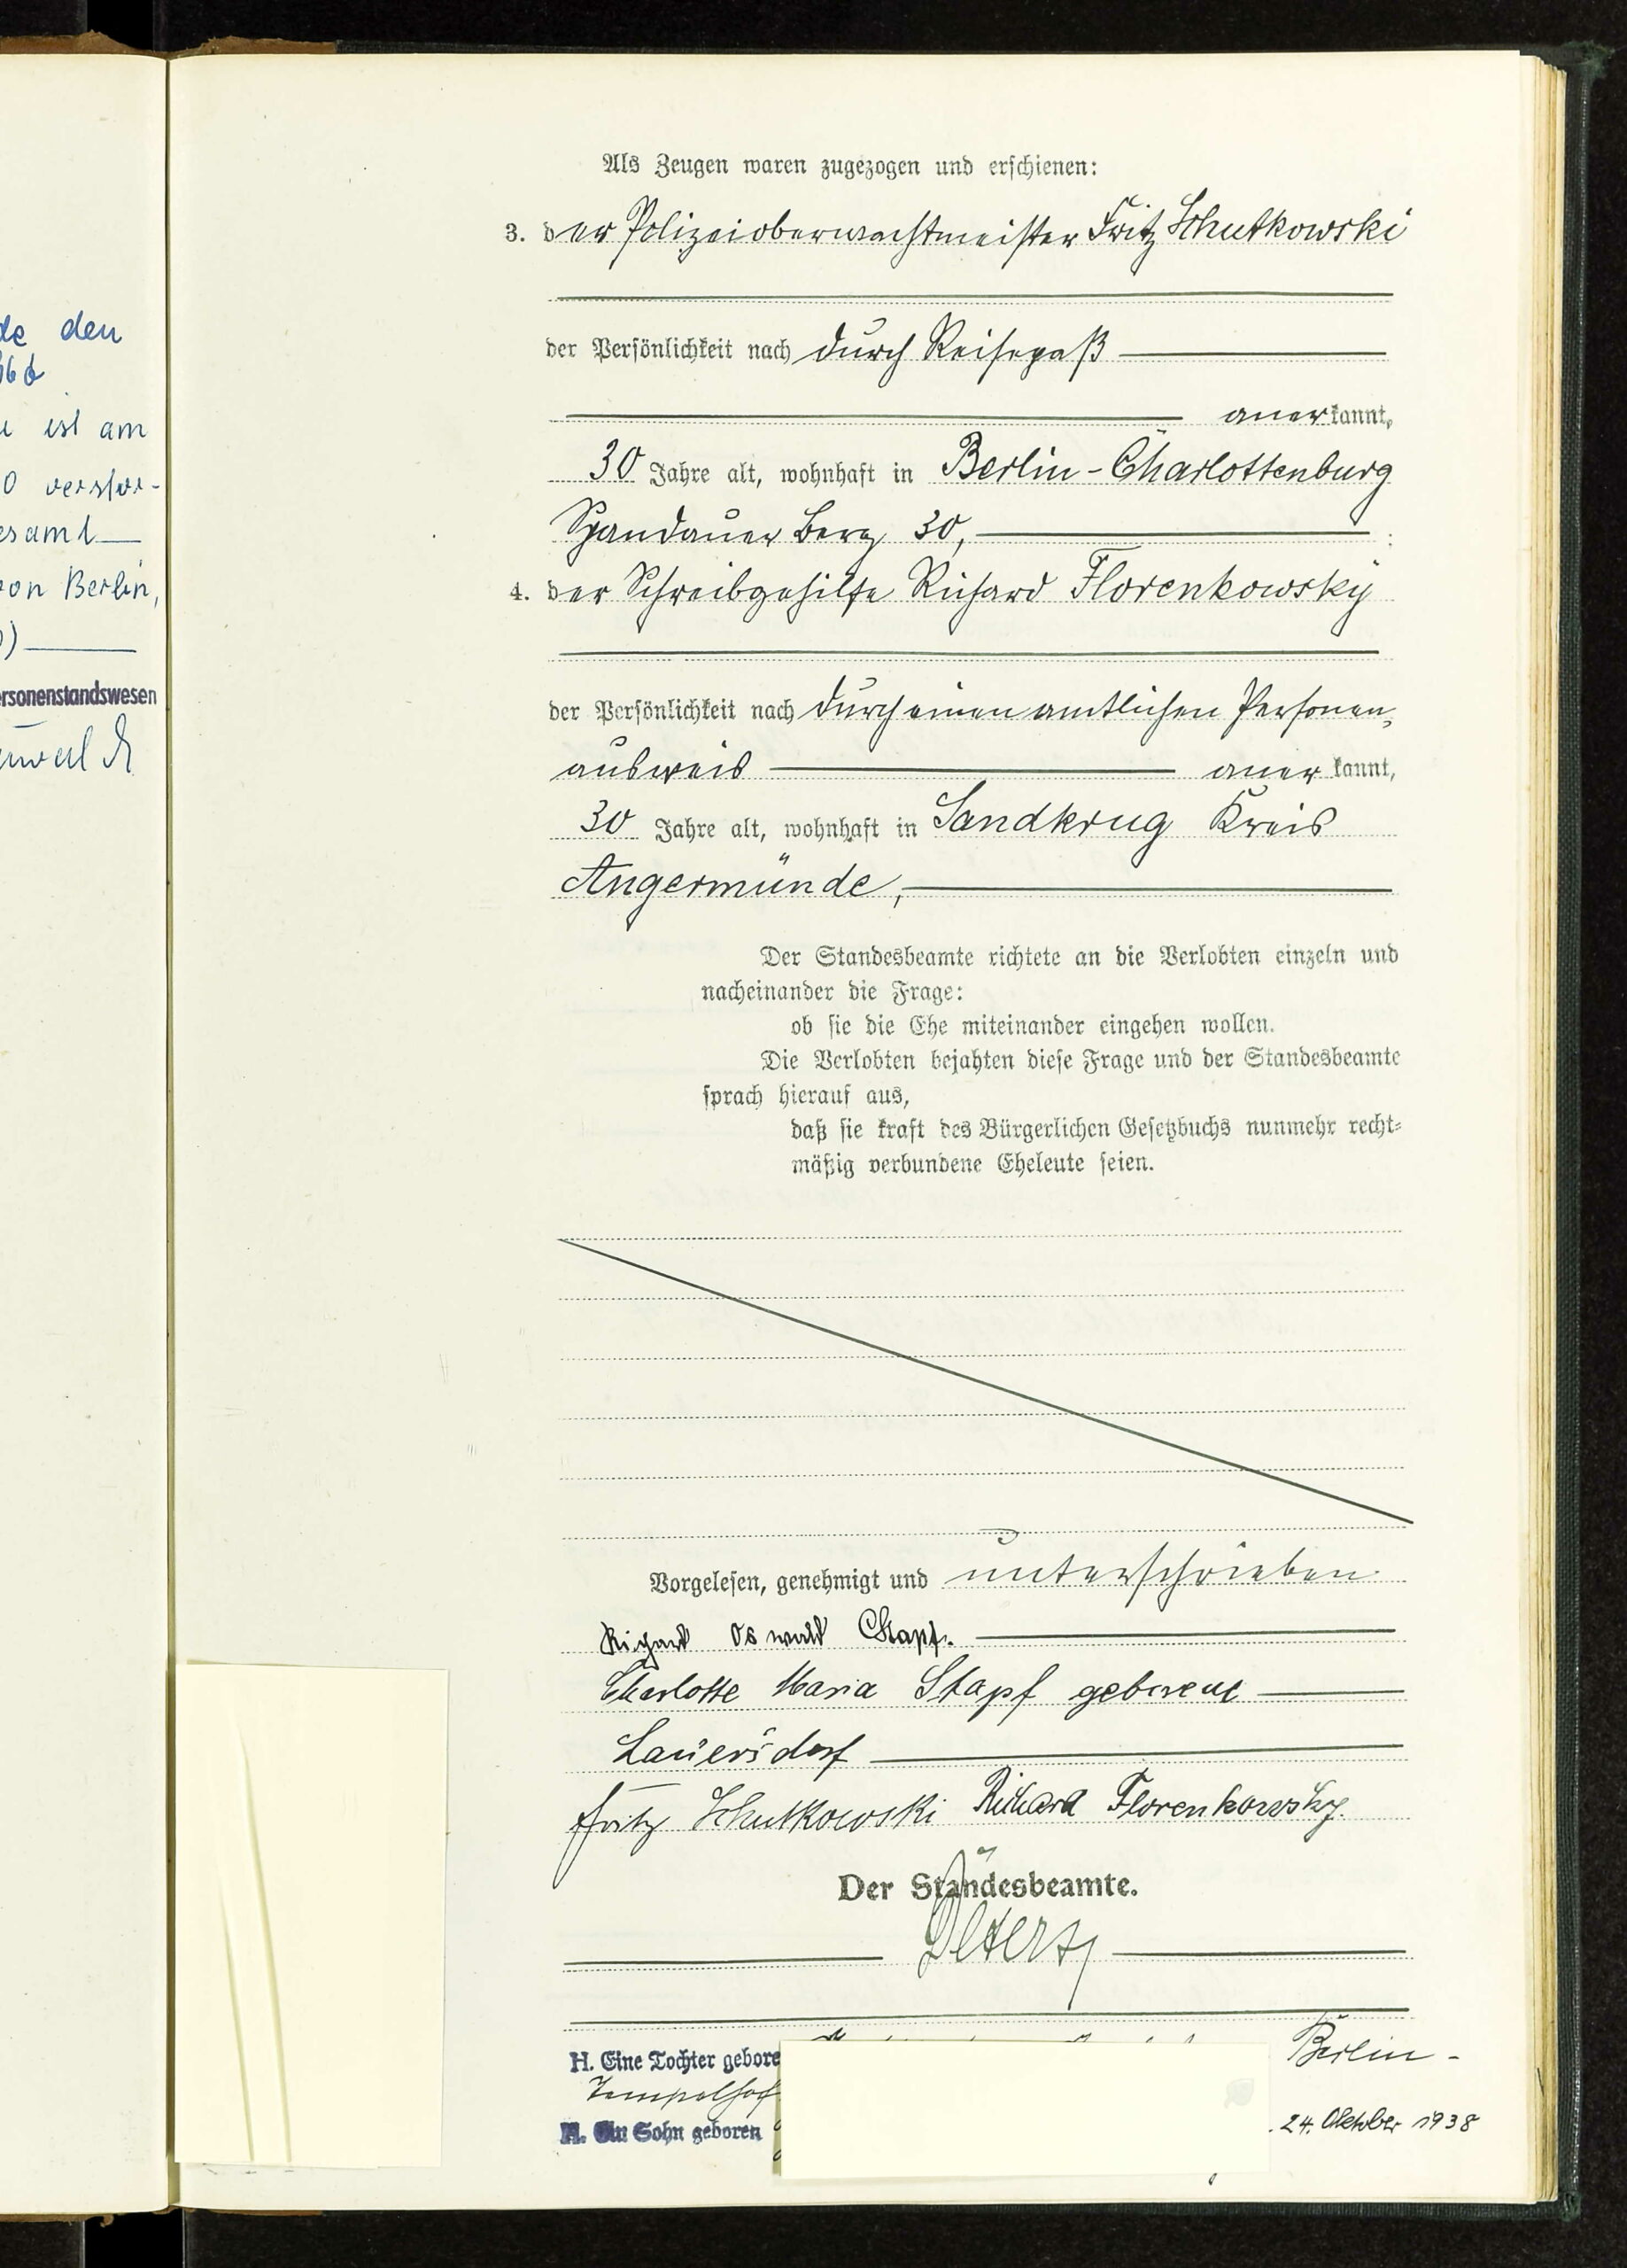 de den
ist am
0 verstor-
esamt
von Berlin,
)
ersonenstandswesen
Als Zeugen waren zugezogen und erschienen:
3. der Polizeioberwachtmeister Fritz Schutkowski
der Persönlichkeit nach durch Reisepaß
anerkannt,
30 Jahre alt, wohnhaft in Berlin-Charlottenburg
Spandauer Berg 30, :
4. der Schreibgehilfe Richard Florenkowsky
der Persönlichkeit nach durch einen amtlichen Personen-
ausweis anerkannt,
30 Jahre alt, wohnhaft in Sandkrug Kreis
Angermünde,
Der Standesbeamte richtete an die Verlobten einzeln und
nacheinander die Frage:
ob sie die Ehe miteinander eingehen wollen.
Die Verlobten bejahten diese Frage und der Standesbeamte
sprach hierauf aus,
daß sie kraft des Bürgerlichen Gesetzbuchs nunmehr recht-
mäßig verbundene Eheleute seien.
Vorgelesen, genehmigt und unterschrieben
Richard Oswald Stapf.
Charlotte Maria Stapf geborene
Lauersdorf
Fritz Schutkowski Richard Florenkowsky.
Der Standesbeamte.
H. Eine Tochter gebore Berlin-
Tempelhof
H. Ein Sohn geboren 24. Oktober 1938